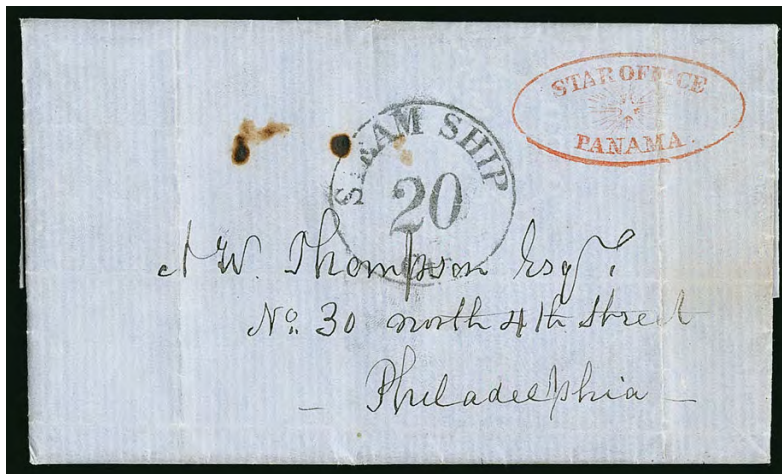 STAR OFFICE
PANAMA
STEAM SHIP
20
W. Thompson Esqr.
No. 30 north 4th Street
– Philadelphia –